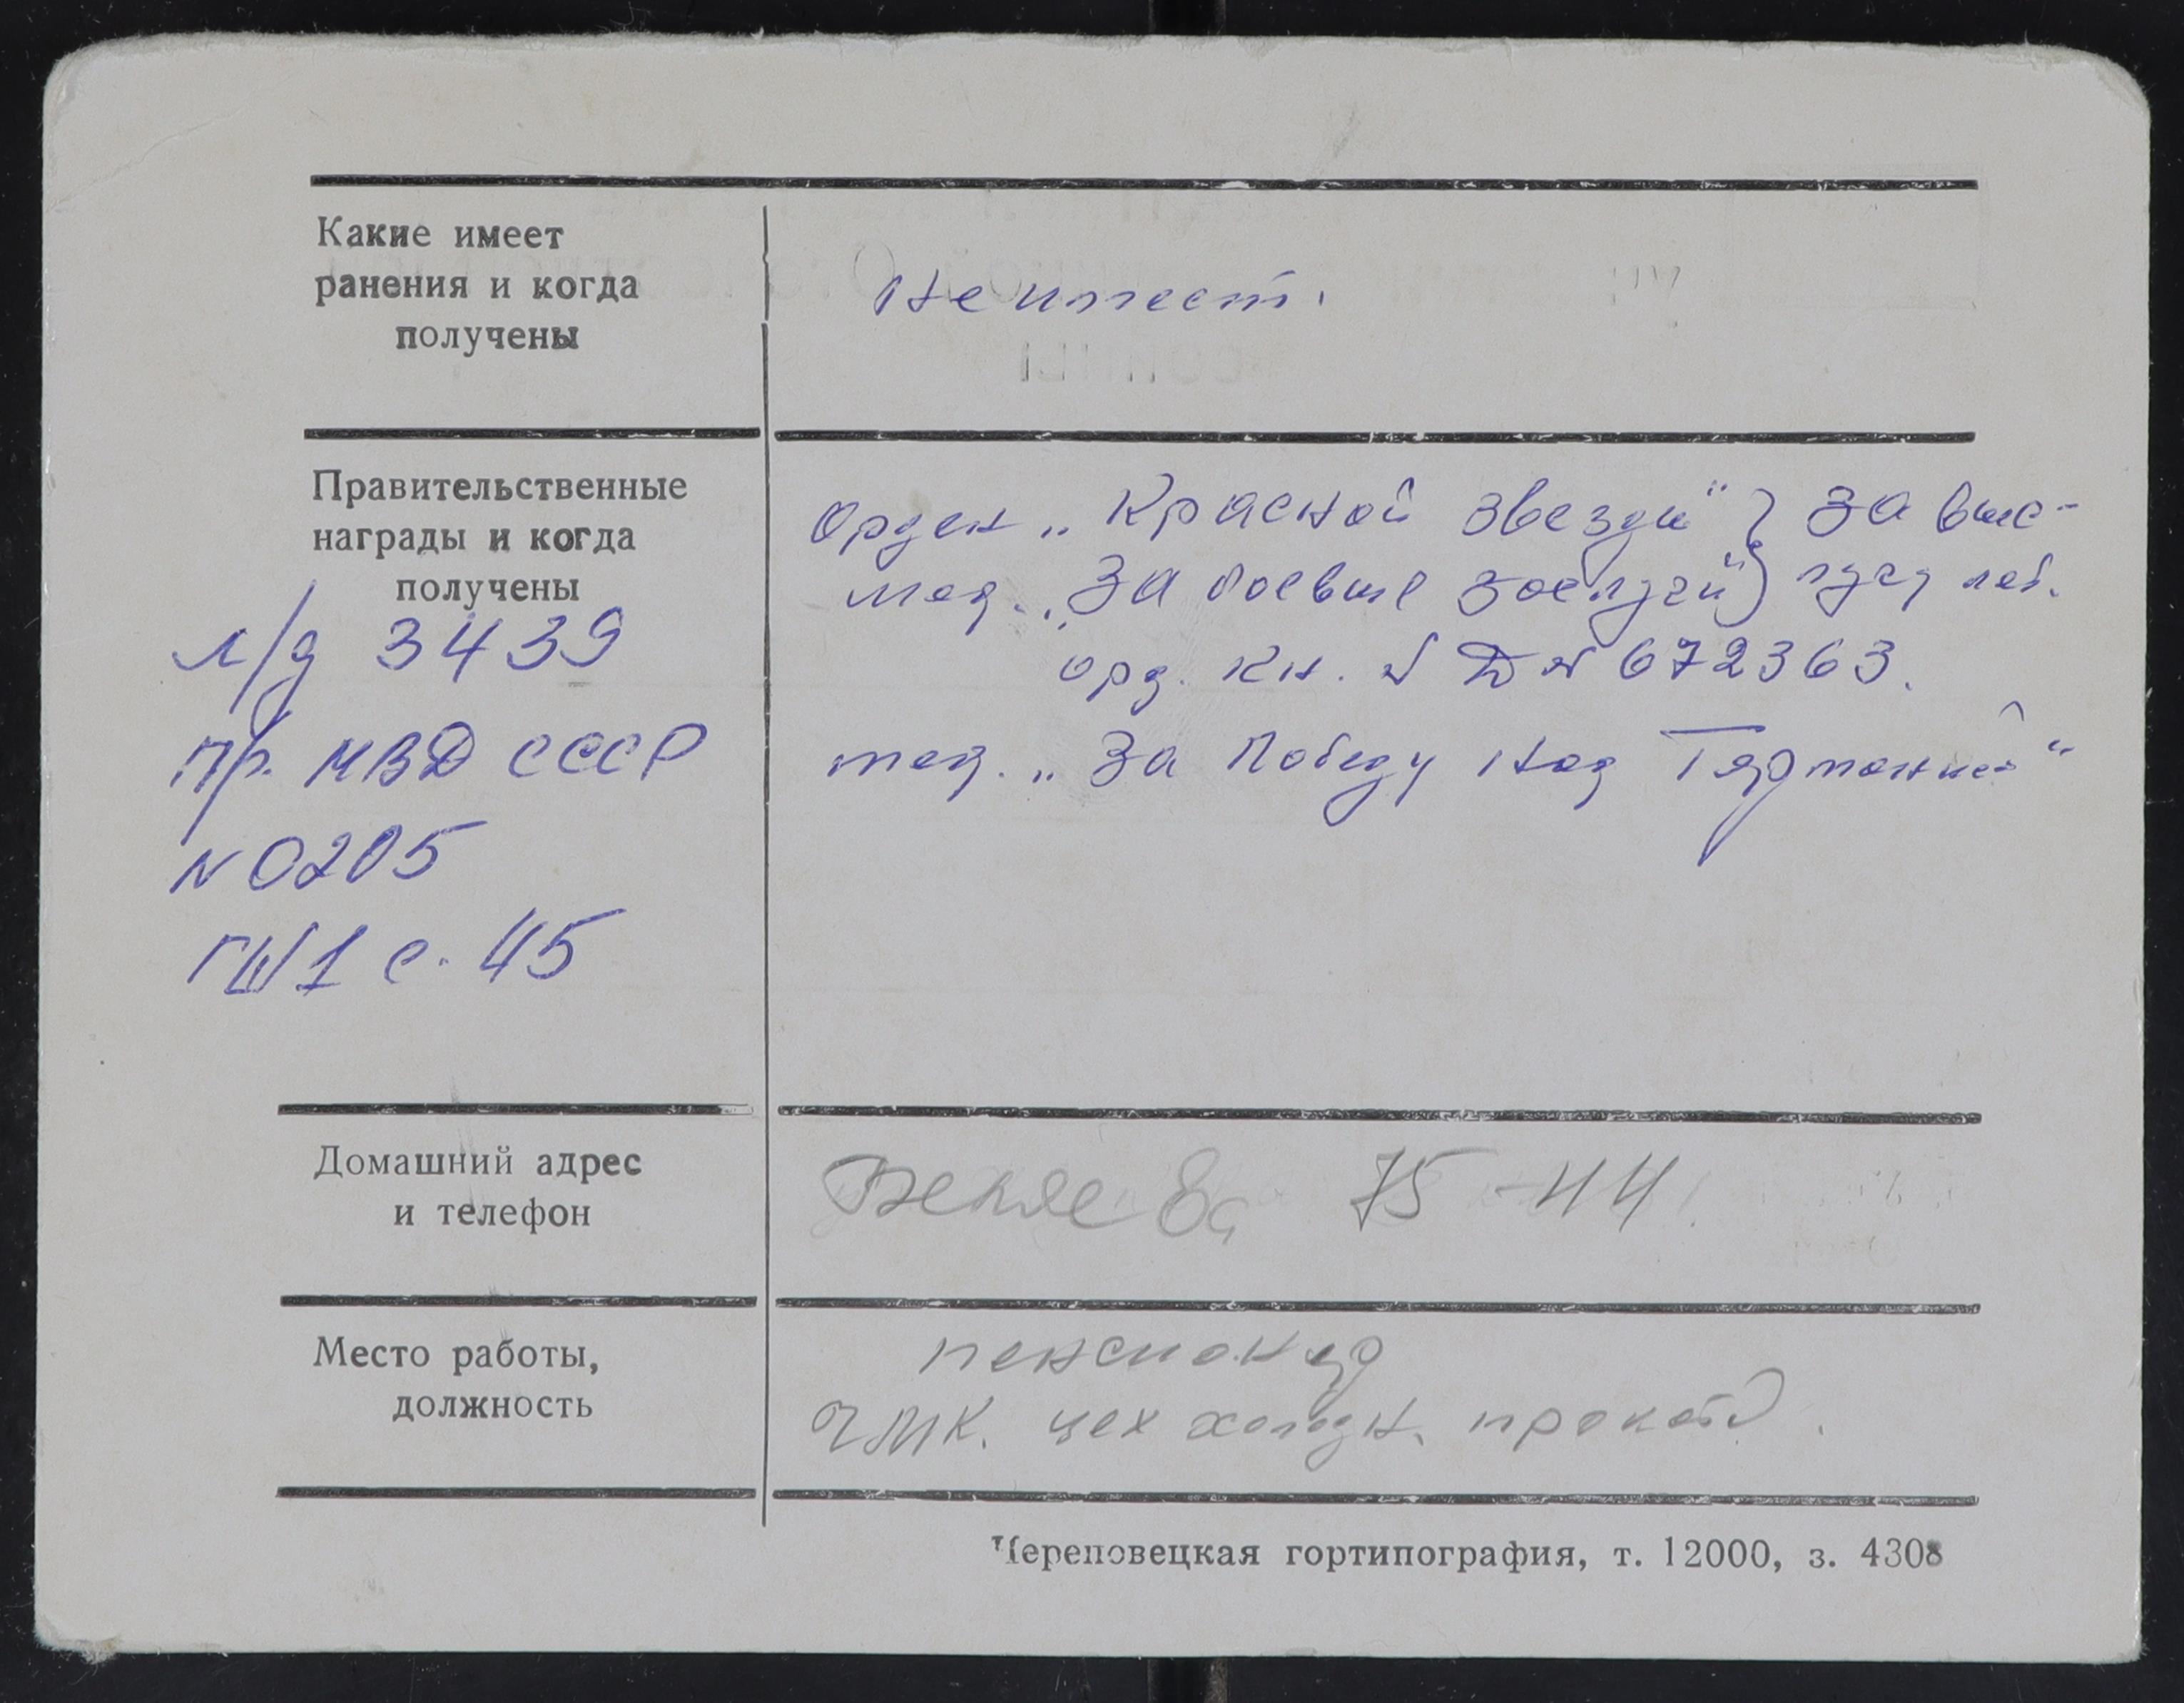 Какие имеет
ранения и когда
получены
Не имеет.
Правительственные
награды и когда
получены
Орден „Красной Звезды“ } За выс-
мед. „За боевые заслуги“ } лугу лет.
орд. кн. № Д № 672363.
мед. „За Победу над Германией“
л/д 3439
пр. МВД СССР
N 0205
ГШ 1 с. 45
Домашний адрес
и телефон
Беляева 75-44.
Место работы,
должность
пенсионер
ЧМК. цех холодн. проката.
Череповецкая гортипография, т. 12000, з. 4308